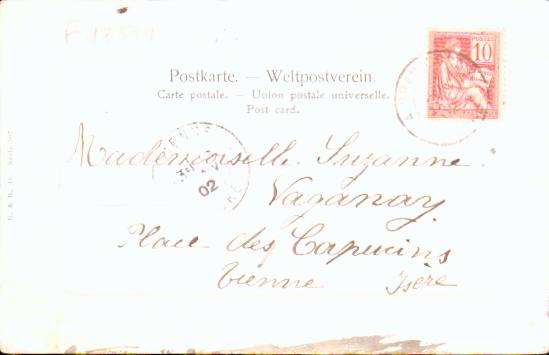 POSTES
10
Postkarte. — Weltpostverein.
Carte postale. — Union postale universelle.
Post card.
Mademoiselle Suzanne
Vaganay
Place des Capucins
Vienne Isère
VIENNE
02